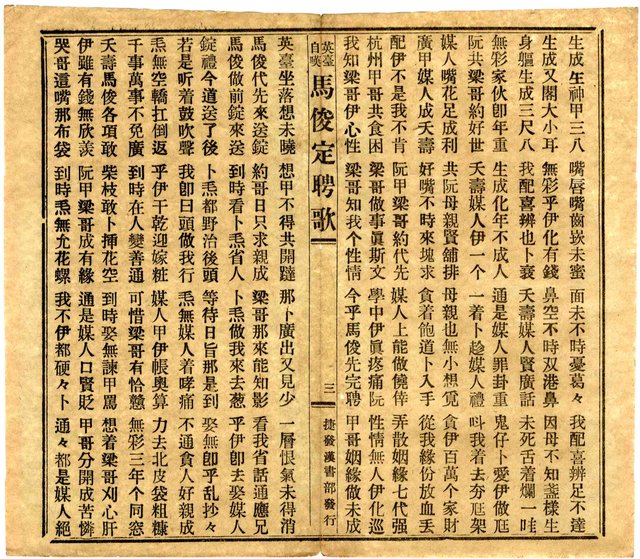 生成生神甲三八　嘴唇嘴齒崁未蜜　面未不時憂葛々　我配喜辨足不達
生成又閣大小耳　無彩乎伊化有錢　鼻空不時双港鼻　因母不知盞樣生
身軀生成三尺八　我配喜辨也卜衰　夭壽媒人賢廣話　未死舌着爛一哇
無彩家伙卽年重　生成化年不成人　通是媒人罪卦重　鬼仔卜愛伊做尫
阮共梁哥約好世　夭壽媒人伊一个　一着卜趁媒人禮　呌我着去夯尫架
媒人嘴花足成利　共阮母親賢舖排　母親也無小想覓　貪伊百萬个家財
廣甲媒人成夭壽　好嘴不時來塊求　貪着飽道卜入手　從我緣份放血丟
配伊不是我不肯　阮甲梁哥約代先　媒人上能做僥倖　弄散姻緣七代强
杭州甲哥共食困　梁哥做事眞斯文　學中伊眞疼痛阮　性情無人伊化巡
我知梁哥伊心性　梁哥知我个性情　今乎馬俊先定聘　甲哥姻緣做未成
英臺自嘆　馬俊定聘歌　三　捷發漢書部發行
英臺坐落想未曉　想甲不得共開躂　那卜廣出又見少　一層恨氣未得消
馬俊代先來送錠　約哥日只求親成　梁哥那來能知影　看我省話通應兄
馬俊做前錠來送　到時看卜𤆬省人　卜𤆬做我來去葱　乎伊卽去娶媒人
錠禮今道送了後　卜𤆬都野治後頭　等待日旨那是到　娶無卽乎乱抄々
若是听着鼓吹聲　我卽曰頭做我行　𤆬無媒人着哮痛　不通貪人好親成
𤆬無空轎扛倒返　乎伊干乾迎嫁粧　媒人甲伊帳奧算　力去北皮袋粗糠
千事萬事不免廣　到時在人變善通　可惜梁哥有恰戇　無彩三年个同窓
夭壽馬俊各項敢　柴枝敢卜揷花空　到時娶無諫甲罵　想着梁哥刈心肝
伊雖有錢無欣羨　阮甲梁哥成有緣　通是媒人口賢貶　甲哥分開成苦憐
哭哥這嘴那布袋　到時𤆬無允花螺　我不伊都硬々卜　通々都是媒人絕